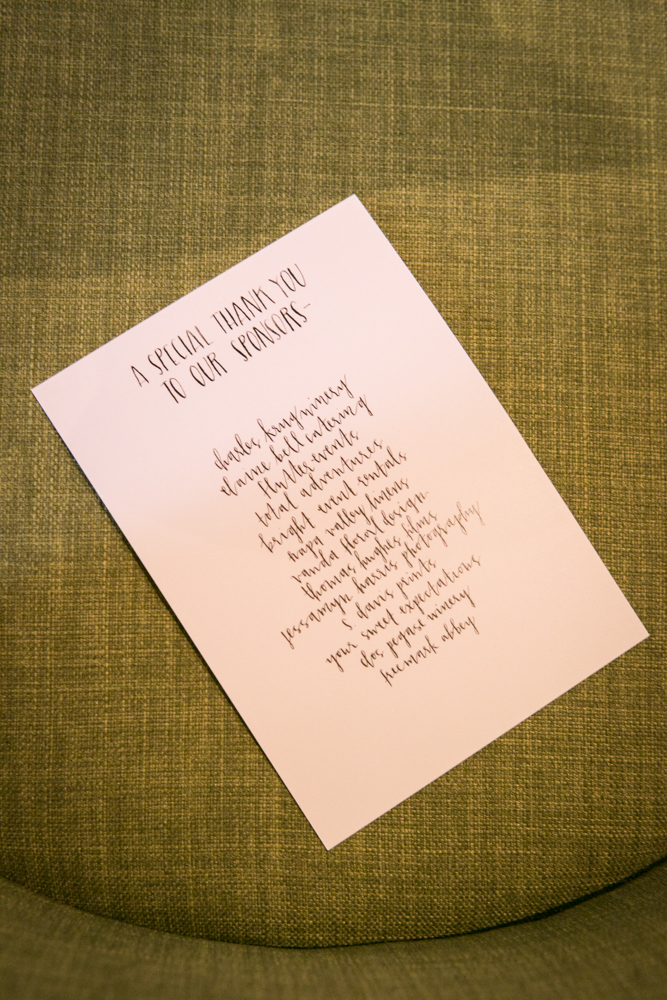 A SPECIAL THANK YOU
TO OUR SPONSORS-
charles krug winery
elaine bell catering
flutter events
total adventures
bright event rentals
napa valley linens
vanda floral design
thomas hughes films
jessamyn harris photography
s davis prints
your sweet expectations
clos pegase winery
freemark abbey